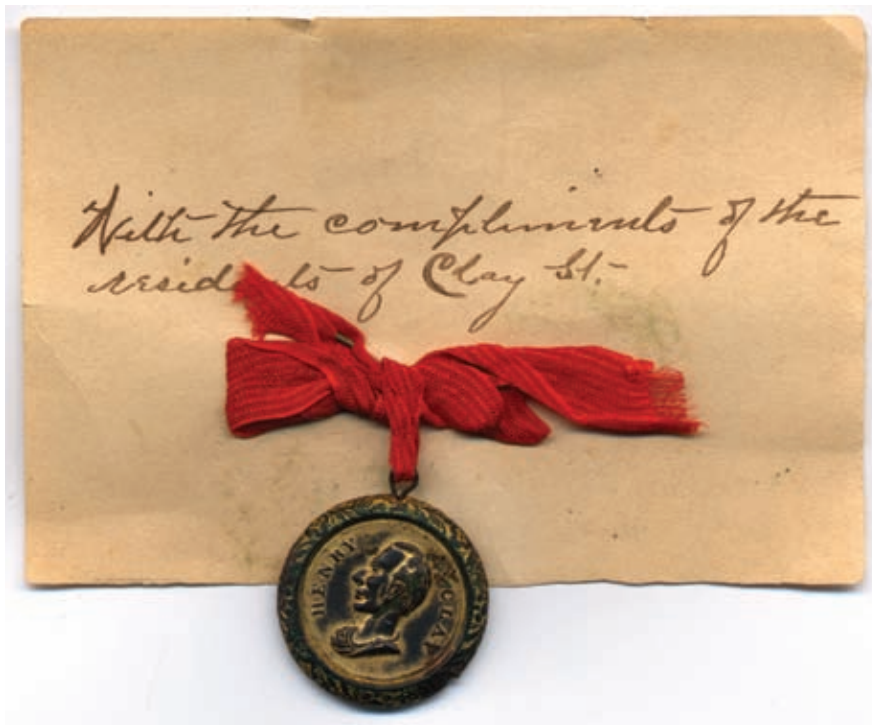 With the compliments of the
residents of Clay St.
HENRY CLAY